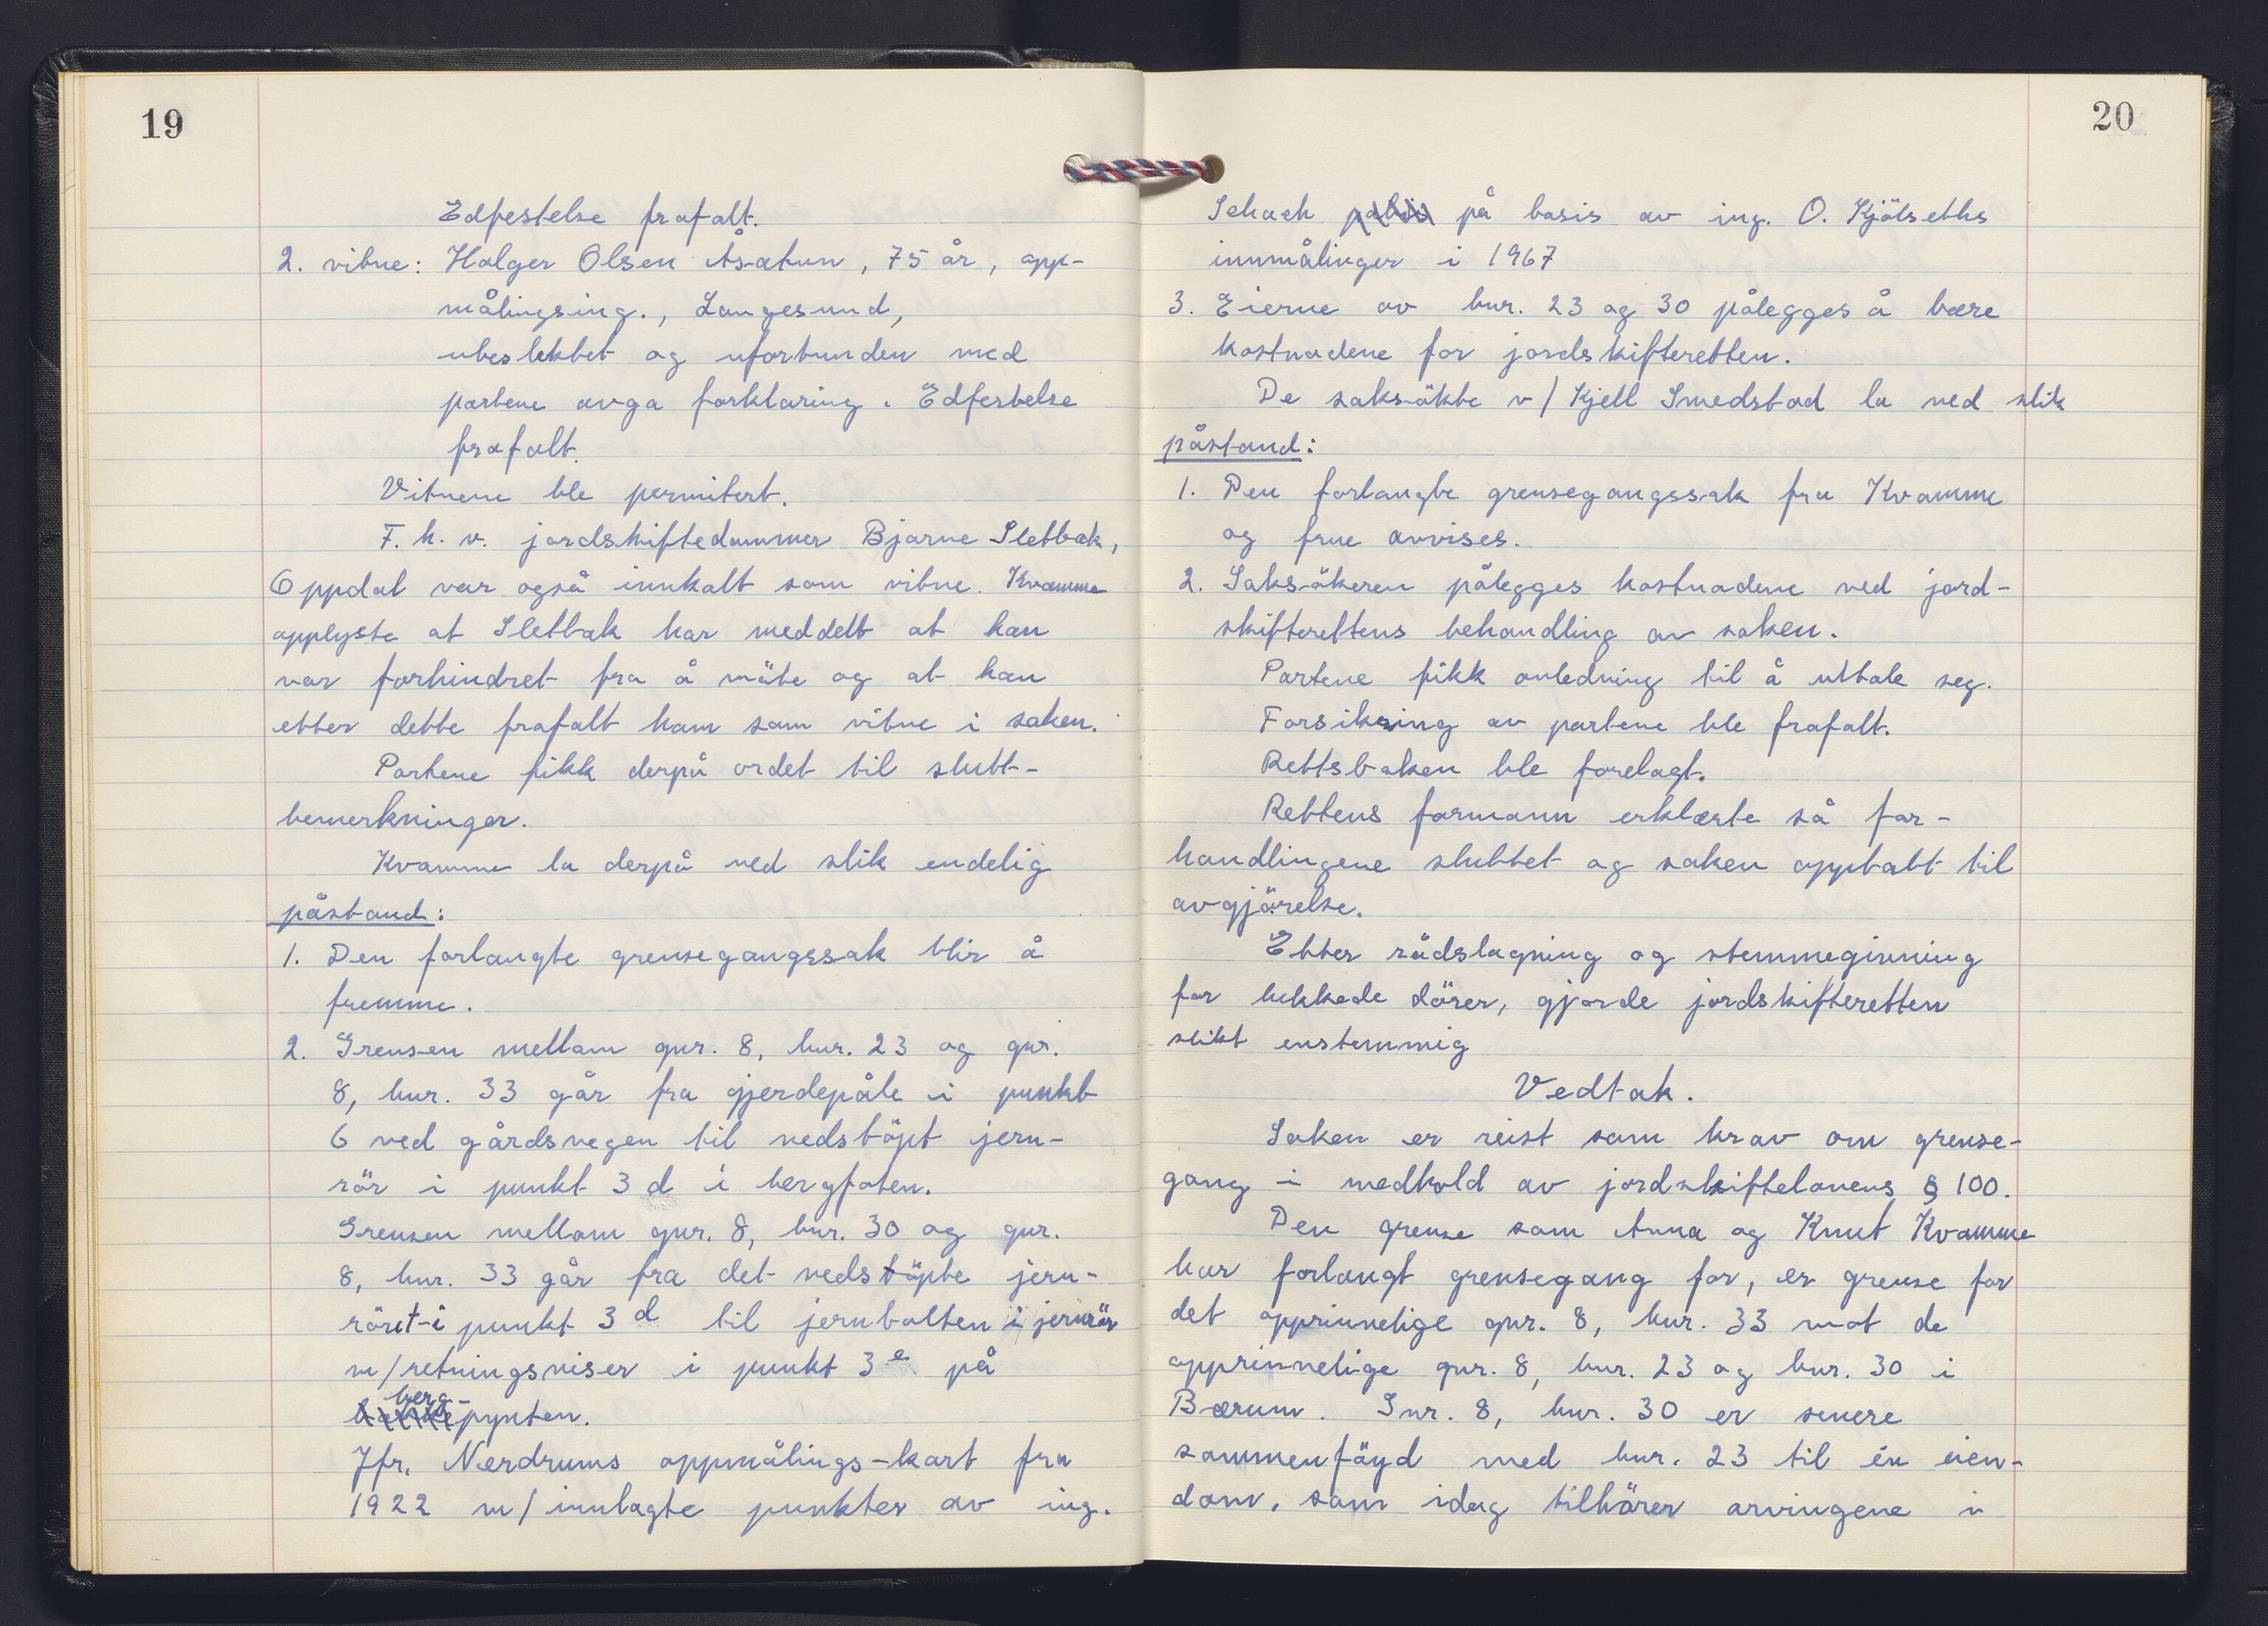 19
Edfestelse frafalt.
2. vitne: Holger Olsen Åsatun, 75 år, opp-
målingsing., Langesund,
ubeslektet og uforbunden med
partene avga forklaring. Edfestelse
frafalt.
Vitnene ble permitert.
F. h. v. jordskiftedommer Bjarne Sletbak,
Oppdal var også innkalt som vitne. Kvamme
opplyste at Sletbak har meddelt at han
var forhindret fra å möte og at han
etter dette frafalt ham som vitne i saken.
Partene fikk derpå ordet til slutt-
bemerkninger.
Kvamme la derpå ned slik endelig
påstand:
1. Den forlangte grensegangssak blir å
fremme.
2. Grensen mellom gnr. 8, bnr. 23 og gnr.
8, bnr. 33 går fra gjerdepåle i punkt
6 ved gårdsvegen til nedstöpt jern-
rör i punkt 3 d i bergfoten.
Grensen mellom gnr. 8, bnr. 30 og gnr.
8, bnr. 33 går fra det nedstöpte jern-
röret i punkt 3 d til jernbolten i jernrör
m/retningsviser i punkt 3 e på
berg-
pynten.
Jfr. Nærdrums oppmålings-kart fra
1922 m/innlagte punkter av ing.
20
Schach på basis av ing. O. Kjölseths
innmålinger i 1967
3. Eierne av bnr. 23 og 30 pålegges å bære
kostnadene for jordskifteretten.
De saksökte v/Kjell Smedstad la ned slik
påstand:
1. Den forlangte grensegangssak fra Kvamme
og frue avvises.
2. Saksökeren pålegges kostnadene ved jord-
skifterettens behandling av saken.
Partene fikk anledning til å uttale seg.
Forsikring av partene ble frafalt.
Rettsboken ble forelagt.
Rettens formann erklærte så for-
handlingene sluttet og saken opptatt til
avgjörelse.
Etter rådslagning og stemmegivning
for lukkede dörer, gjorde jordskifteretten
slikt enstemmig
Vedtak.
Saken er reist som krav om grense-
gang i medhold av jordskiftelovens § 100.
Den grense som Anna og Knut Kvamme
har forlangt grensegang for, er grense for
det opprinnelige gnr. 8, bnr. 33 mot de
opprinnelige gnr. 8, bnr. 23 og bnr. 30 i
Bærum. Gnr. 8, bnr. 30 er senere
sammenföyd med bnr. 23 til én eien-
dom, som idag tilhörer arvingene i